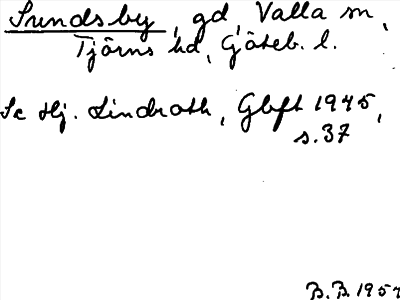 Sundsby, gd, Valla sn,
Tjörns hd, Göteb. l.
Se Hj. Lindroth, Gbft 1945,
s. 37
B.B. 195